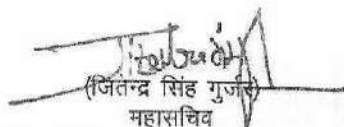 (जितेन्द्र सिंह गुर्जर)
महासचिव